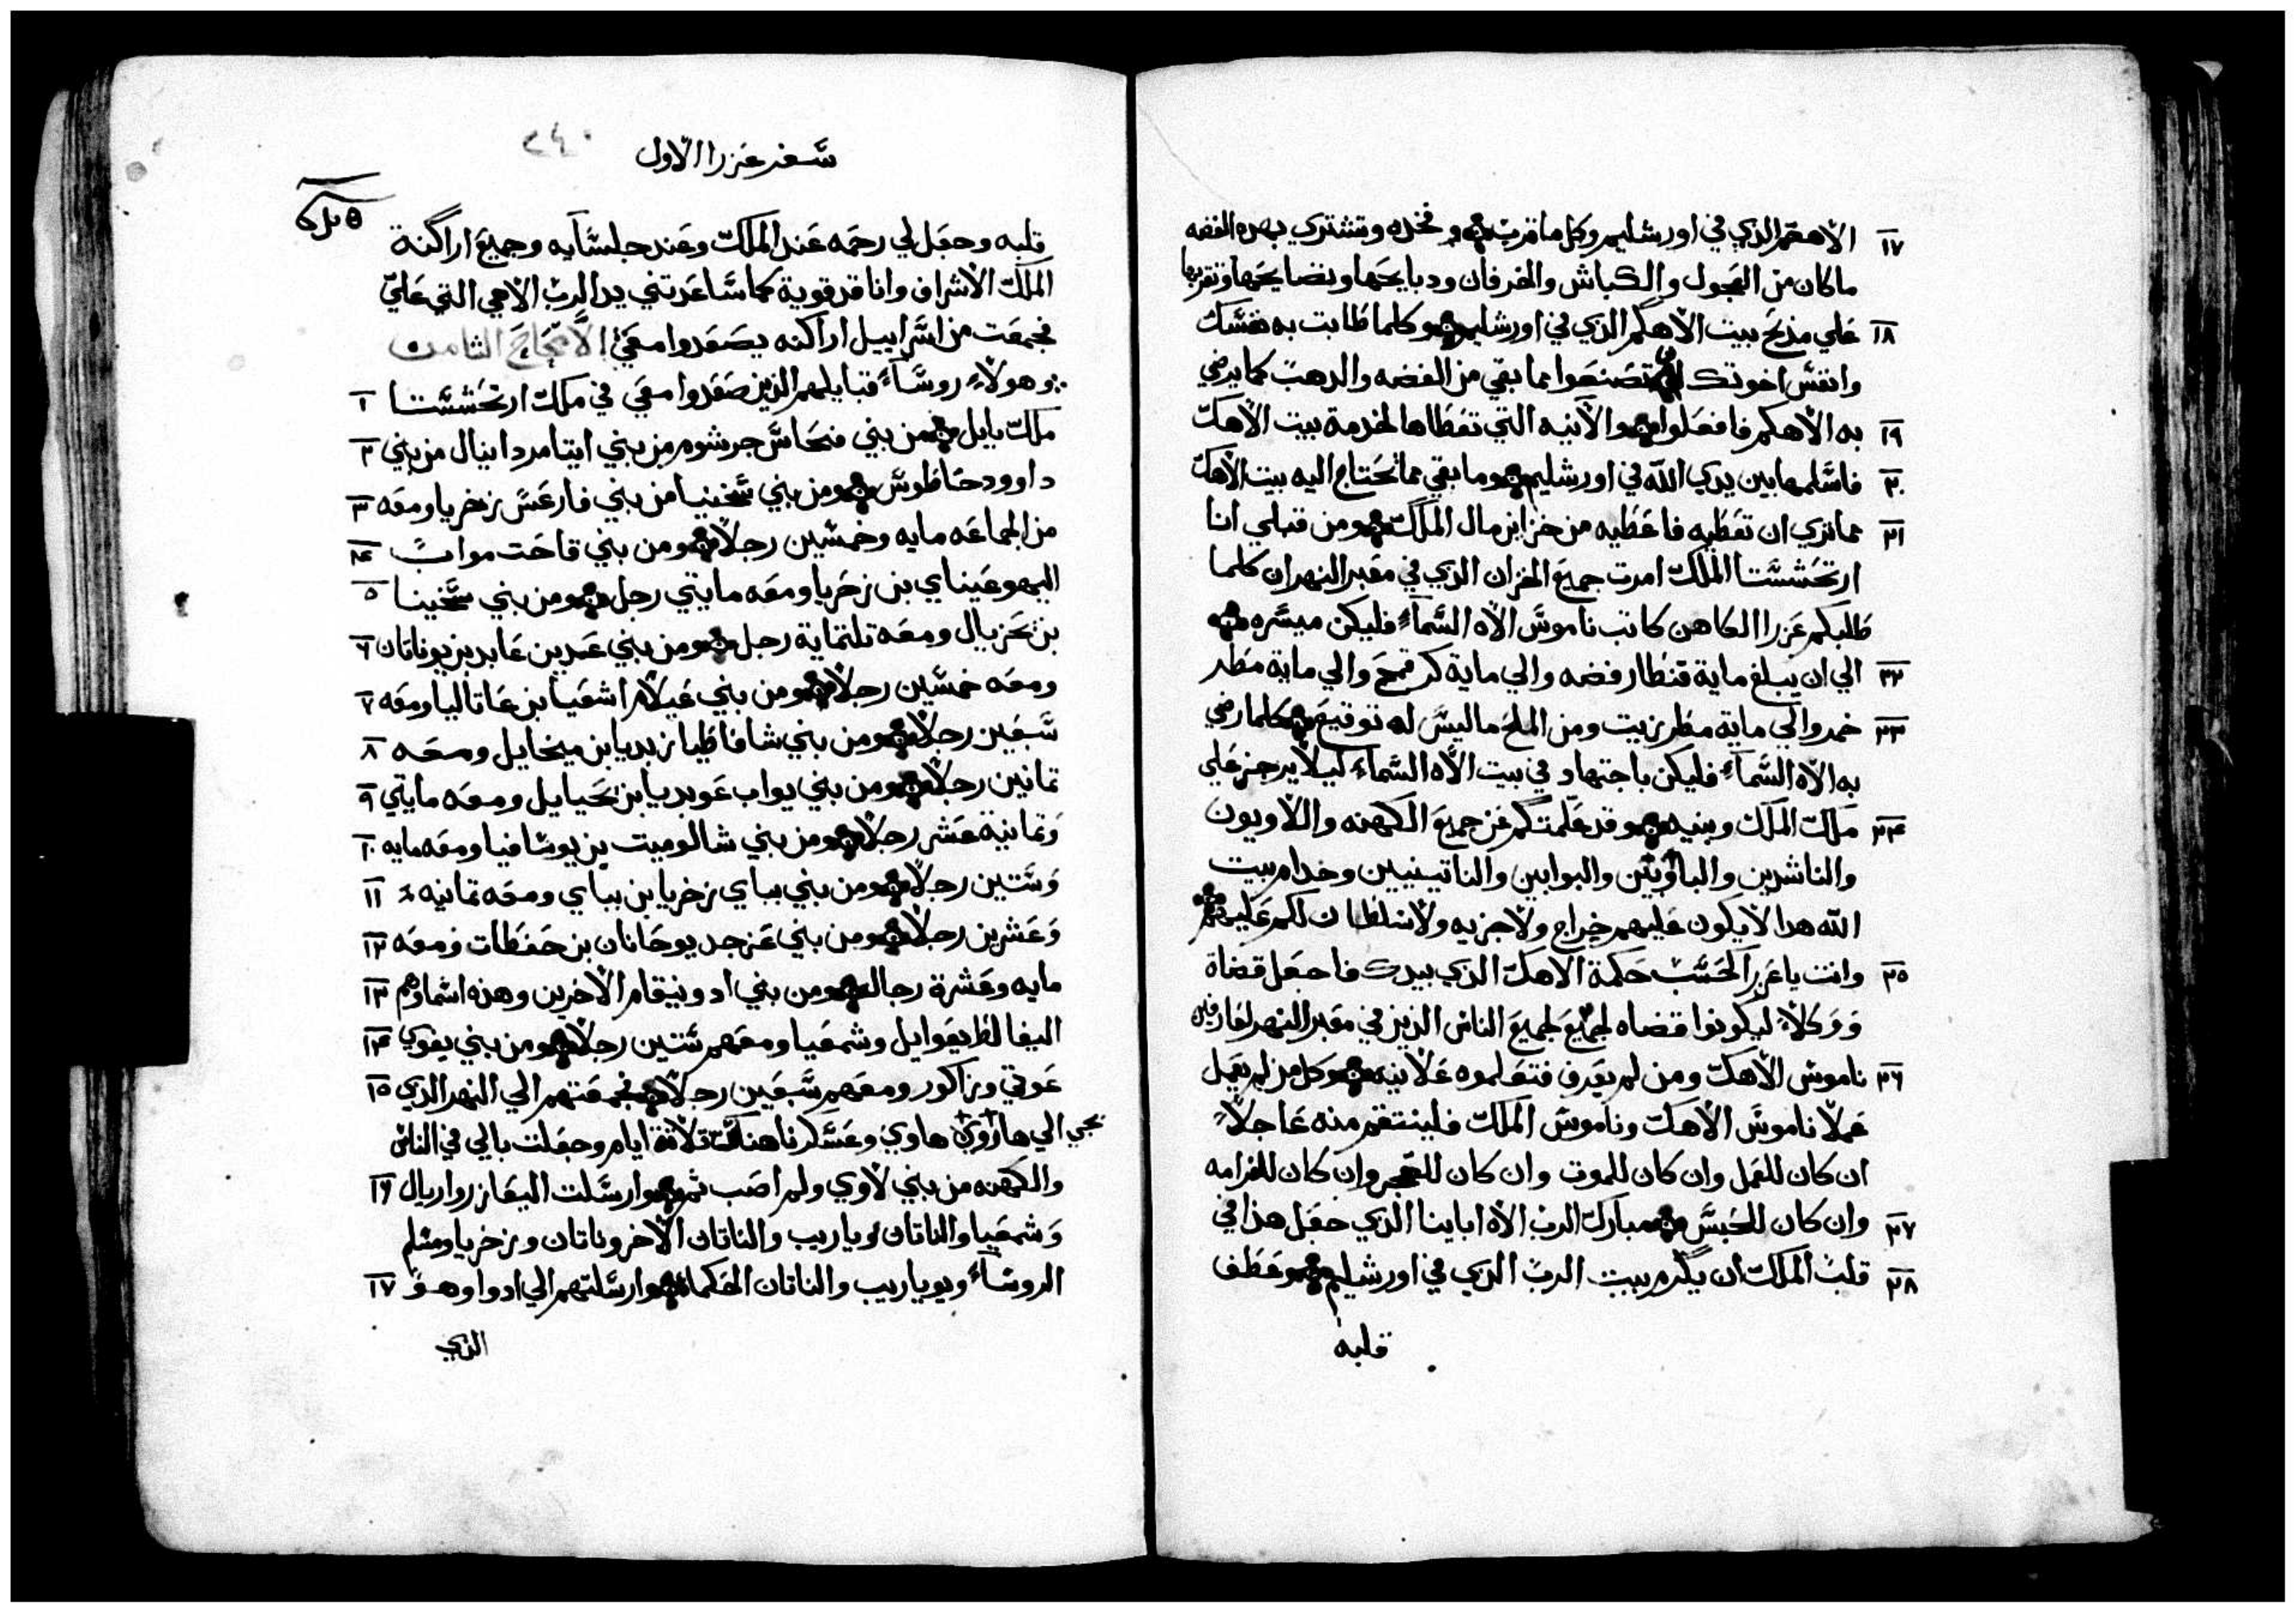 ١٧ الاهكم الذي في اورشليم وكل ما قرب وخذه وتشتري بهذه الفضه
ماكان من العجول والكباش والخرفان ودبايحها ونضايحها وتقربها
١٨ علي مذبح بيت الاهكم الذي في اورشليم وكلما طابت به نفسك
وانفس اخوتك ان تصنعوا مما بقي من الفضه والدهب كما يرضي
١٩ به الاهكم فافعلوا والآنيه التي تعطاها لخدمة بيت الاهك
٢٠ فاسلمها بين يدي الله في اورشليم وما بقي مما تحتاج اليه بيت الاهك
٢١ مما تري ان تعطيه فاعطيه من خزاين مال الملك ومن قبلي انا
ارتحششتا الملك امرت جميع الخزان الذي في معبر النهران كلما
طلبكم عزرا الكاهن كاتب ناموس الاه السماء فليكن ميسره
٢٢ الي ان يبلغ ماية قنطار فضه والي ماية كر قمح والي ماية مطر
٢٣ خمر والي ماية مطر زيت ومن الملح ما ليس له توقيع كلما رضي
به الاه السماء فليكن باجتهاد في بيت الاه السماء كيلا يرجز علي
٢٤ ملك الملك وبنيه وقد علمتكم عن جميع الكهنه واللاويون
والناشدين والبوابين والناتينيين وخدام بيت
الله هدا لا يكون عليهم خراج ولا جزيه ولا سلطان لكم عليهم
٢٥ وانت يا عزرا لحسب حكمة الاهك الذي بيدك فاجعل قضاة
ووكلاء ليكونوا قضاه لجميع لجميع الناس الذين في معبر النهر لعارفين
٢٦ ناموس الاهك ومن لم يعرف فتعلموه علانيه وكل من لم يعمل
عملا ناموس الاهك وناموس الملك فلينتقم منه عاجلا
ان كان للعمل وان كان للموت وان كان للتحجر وان كان للغرامه
٢٧ وان كان للحبس مبارك الرب الاه اباينا الذي جعل هذا في
٢٨ قلب الملك ان يكرم بيت الرب الذي في اورشليم وعطف
قلبه
سفر عزرا الاول
٢٤٠
قلبه وجعل لي رحمه عند الملك وعند جلسايه وجميع اراكنة
الملك الاشراف وانا قد قوية كما ساعدتني يد الرب الاهي التي علي
فجمعت من اسراييل اراكنه يصعدوا معي الاصحاح الثامن
وهولاء روساء قبايلهم الذين صعدوا معي في ملك ارتحششتا ١
ملك بابل من بني فنحاس جرشوم من بني ايتامر دانيال من بني ٢
داوود حاطوس ومن بني سخنيا من بني فارعس زخريا ومعه ٣
من الجماعه مايه وخمسين رجلا ومن بني قاحت مواب ٤
اليهوعيناي بن زخريا ومعه مايتي رجل ومن بني سخينا ٥
بن نحزيال ومعه تلتماية رجل ومن بني عدين عابد بن يوناتان ٦
ومعه خمسين رجلا ومن بني عيلام اشعيا بن عاتاليا ومعه ٧
سبعين رجلا ومن بني شافاطيا زبديا بن ميخايل ومعه ٨
تمانين رجلا ومن بني يواب عوبديا بن يحيايل ومعه مايتي ٩
وتمانية عشر رجلا ومن بني شالوميت بن يوشافيا ومعه مايه ١٠
وستين رجلا ومن بني بباي زخريا بن بباي ومعه تمانيه ١١
وعشرين رجلا ومن بني عزجد يوحانان بن حفطات ومعه ١٢
مايه وعشرة رجال ومن بني ادونيقام الاخرين وهذه اسماوهم ١٣
اليفالط يعوايل وشمعيا ومعهم ستين رجلا ومن بني يغوي ١٤
عوتي وزاكور ومعهم سبعين رجلا فجمعتهم الي النهر الذي ١٥
يجي الي هاوي وعسكرنا هناك تلاتة ايام وجعلت بالي في الناس
والكهنه من بني لاوي ولم اصب ثم وارسلت اليعازر واريال ١٦
وشمعيا والناتان وياريب والناتان الاخر وناتان وزخريا ومشلم
الروساء ويوياريب والناتان الحكماء وارسلتهم الي ادوا وهو ١٧
الذي